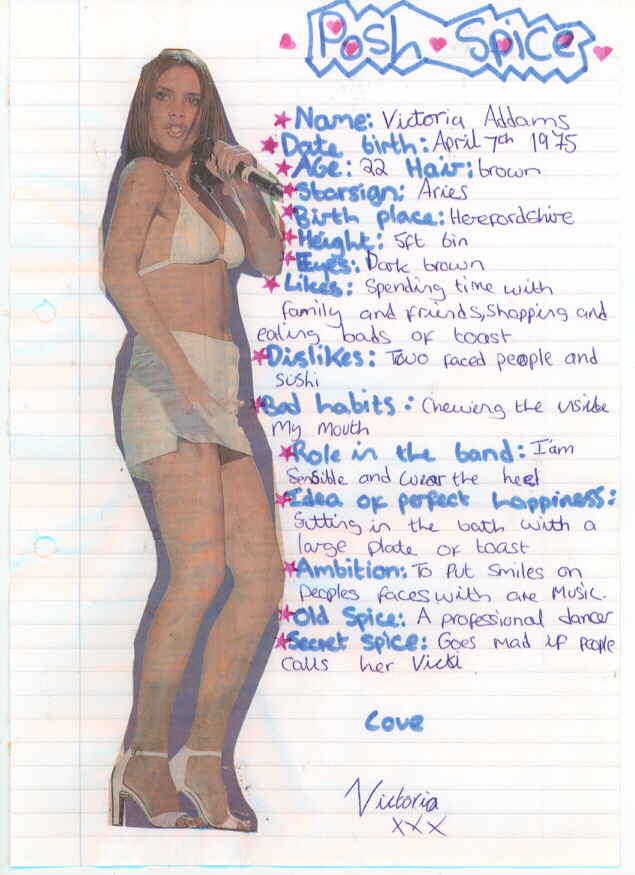 Posh Spice
Name: Victoria Addams
Date birth: April 7th 1975
Age: 22 Hair: brown
Starsign: Aries
Birth place: Herefordshire
Height: 5ft 6in
Eyes: Dark brown
Likes: Spending time with
family and friends, shopping and
eating loads of toast
Dislikes: Two faced people and
sushi
Bad habits: Chewing the inside
My mouth
Role in the band: I'am
Sensible and wear the heel
Idea of perfect happiness:
Sitting in the bath with a
large plate of toast
Ambition: To Put smiles on
Peoples faces with are Music.
Old Spice: A professional dancer
Secret spice: Goes mad if People
calls her Vicki
Love
Victoria
xxx